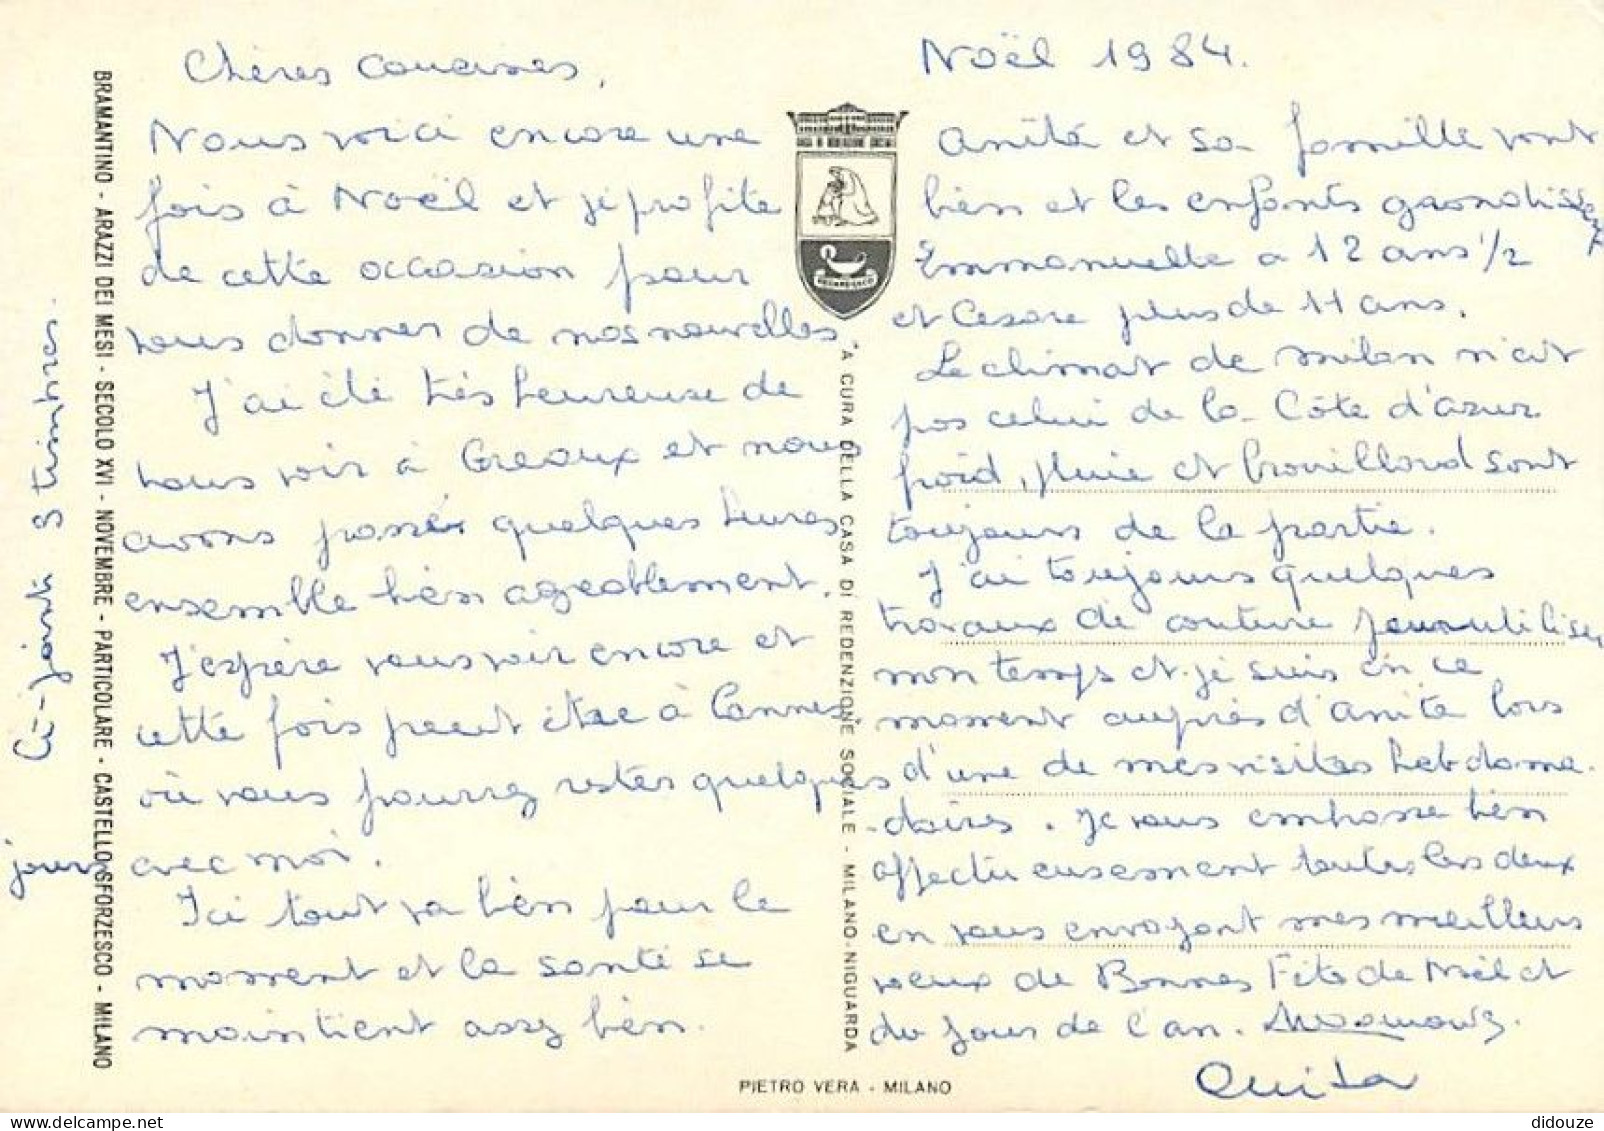 Chères cousines,
Nous voici encore une
fois à Noël et je profite
de cette occasion pour
vous donner de nos nouvelles
J'ai été très heureuse de
vous voir à Gréoux et nous
avons passé quelques heures
ensemble bien agréablement.
J'espère vous voir encore et
cette fois peut être à Cannes
où vous pourrez rester quelques
jours avec moi.
Ici tout va bien pour le
moment et la santé se
maintient assez bien.
Noël 1984.
Anita et sa famille vont
bien et les enfants grandissent
Emmanuelle a 12 ans 1/2
et Cesare plus de 11 ans.
Le climat de Milan n'est
pas celui de la Côte d'azur
froid, pluie et brouillard sont
toujours de la partie.
J'ai toujours quelques
travaux de couture pour utiliser
mon temps et je suis en ce
moment auprès d'Anita lors
d'une de mes visites hebdoma.
-daires. Je vous embrasse bien
affectueusement toutes les deux
en vous envoyant mes meilleurs
voeux de Bonnes Fêtes de Noël et
du jour de l'an.
Ci-joint 3 timbres.
BRAMANTINO - ARAZZI DEI MESI - SECOLO XVI - NOVEMBRE - PARTICOLARE - CASTELLO SFORZESCO - MILANO
CASA DI REDENZIONE SOCIALE
"A CURA DELLA CASA DI REDENZIONE SOCIALE - MILANO-NIGUARDA
PIETRO VERA - MILANO
didouze